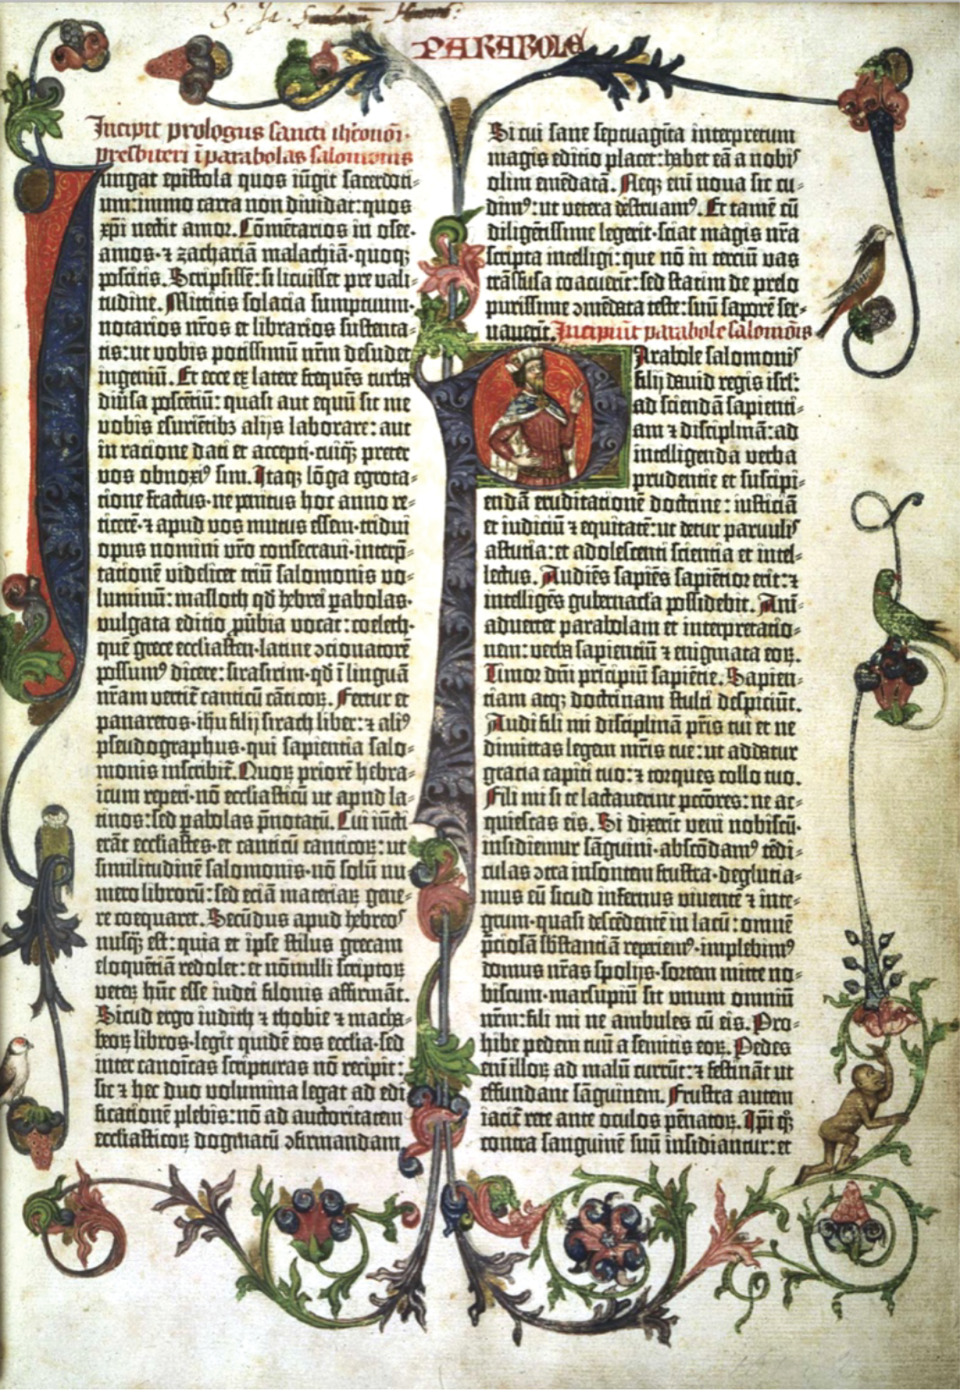 PARABOLE
Incipit prologus sancti iheronimi
presbiteri ī parabolas salomonis
Iungat epistola quos iūgit sacerdoti-
um: immo carta non diuidat: quos
xp̄i nectit amor. Cōmētarios in osee.
amos. ⁊ zachariam malachiā. quoqꝫ
poscitis. Scripsissē: si licuisset pre vali-
tudine. Mittitis solacia sumptuum.
notarios nr̄os et librarios sustenta-
tis: ut vobis potissimū nr̄m desudet
ingeniū. Et ecce ex latere frequēs turba
diūsa poscētiū: quasi aut equū sit me
vobis esurietibꝫ alijs laborare: aut
in racione dati et accepti. cuiꝙ preter
vos obnoxiꝰ sim. Itaqꝫ lōga egrota-
tione fractus. ne penitus hoc anno re-
ticerē. ⁊ apud vos mutus essem. tridui
opus nomini vr̄o consecraui. interp̄-
tationē videlicet triū salomonis vo-
luminū: masloth qđ hebrei ꝑabolas.
vulgata editio ꝓūbia vocat: coeleth.
quē grece ecclesiasten. latine ↄcionatorē
possumꝰ dicere: sirasirim. qđ ī linguā
nr̄am vertit̄ canticū cāticoꝝ. Fertur et
panaretos. ihū filij sirach liber: ⁊ aliꝰ
pseudographus. qui sapientia salo-
monis inscribit̄. Quoꝝ priorē hebra-
icum reperi. nō ecclesiasticū ut apud la-
tinos: sed ꝑabolas p̄notatū. Cui iūcti
erāt ecclesiastes. et canticū canticoꝝ: ut
similitudinē salomonis. nō solū nu-
mero librorū: sed eciā materiaꝝ gene-
re coequaret. Secūdus apud hebreos
nusꝙ est: quia et ipse stilus grecam
eloquētiā redolet: et nōnulli scriptoꝝ
veteꝝ hūc esse iudei filonis affirmāt.
Sicud ergo iudith ⁊ thobie ⁊ macha-
beoꝝ libros. legit quidē eos ecclesia. sed
inter canoīcas scripturas nō recipit:
sic ⁊ hec duo volumina legat ad edi-
ficationē plebis: nō ad auctoritatem
ecclesiasticoꝝ dogmatū ↄfirmandam.
Si cui sane septuagīta interpretum
magis editio placet: habet eā a nobis
olim emēdatā. Neqꝫ enī noua sic cu-
dimꝰ: ut vetera destruamꝰ. Et tamē cū
diligētissime legerit. sciat magis nr̄a
scripta intelligi: que nō in terciū vas
trāsfusa coacuerīt: sed statim de prelo
purissime ↄmēdata teste: suū saporē ser-
uauerīt. Incipiūt parabole salomōis
Parabole salomonis
filij dauid regis isrl̄:
ad sciendā sapienti-
am ⁊ disciplinā: ad
intelligenda verba
prudentie et suscipi-
endā eruditationē doctrine: iusticiā
et iudiciū ⁊ equitatē: ut detur paruulis
astutia: et adolescenti scientia et intel-
lectus. Audiēs sapiēs sapiētior erit: ⁊
intelligēs gubernacła possidebit. Ani-
aduertet parabolam et interpretatio-
nem: verba sapientiū ⁊ enigmata eoꝝ.
Timor dn̄i prīcipiū sapiētie. Sapien-
ciam atqꝫ doctrinam stulti despiciūt.
Audi fili mi disciplinā pr̄is tui et ne
dimittas legem mr̄is tue: ut addatur
gracia capiti tuo: ⁊ torques collo tuo.
Fili mi si te lactauerint pc̄cōres: ne ac-
quiescas eis. Si dixerīt veni nobiscū.
insidiemur sāguini. abscōdamꝰ tēdi-
culas ↄtra insontem frustra. deglutia-
mus eū sicud infernus viuentē ⁊ inte-
grum. quasi descēdentē in lacū: omnē
p̄ciosā sb̄stantiā reperiemꝰ. implebimꝰ
domus nr̄as spolijs. sortem mitte no-
biscum. marsupiū sit unum omniū
nr̄m: fili mi ne ambules cū eis. Pro-
hibe pedem tuū a semitis eoꝝ. Pedes
enī illoꝝ ad malū currūt: ⁊ festināt ut
effundant sāguinem. Frustra autem
iacit̄ rete ante oculos pēnatoꝝ. Ip̄i qꝫ
contra sanguinē suū insidiantur: et